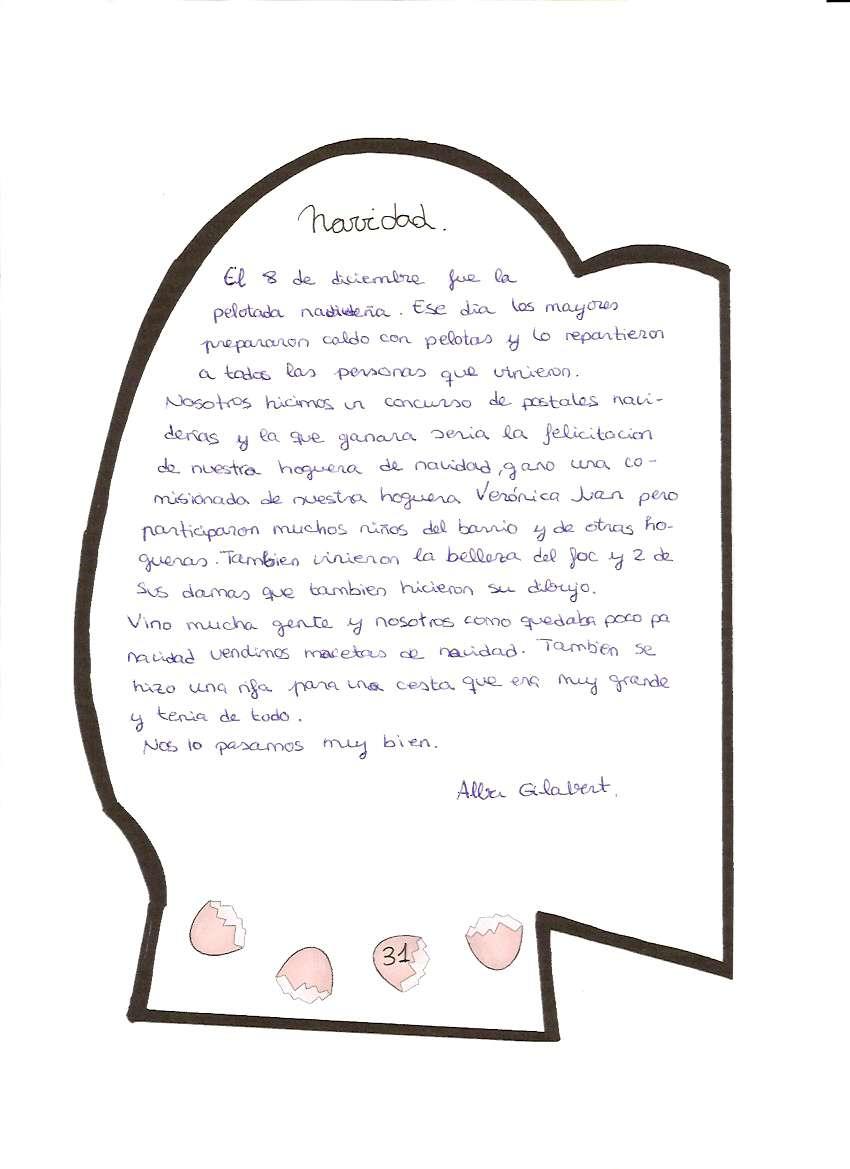 Navidad.
El 8 de diciembre fue la
pelotada navideña. Ese dia los mayores
prepararon caldo con pelotas y lo repartieron
a todas las personas que vinieron.
Nosotros hicimos un concurso de postales navi-
deñas y la que ganara seria la felicitacion
de nuestra hoguera de navidad, gano una co-
misionada de nuestra hoguera Verónica Juan pero
participaron muchos niños del barrio y de otras ho-
gueras. Tambien vinieron la belleza del foc y 2 de
sus damas que tambien hicieron su dibujo.
Vino mucha gente y nosotros como quedaba poco pa
navidad vendimos macetas de navidad. Tambien se
hizo una rifa para una cesta que era muy grande
y tenia de todo.
Nos lo pasamos muy bien.
Alba Gilabert.
31